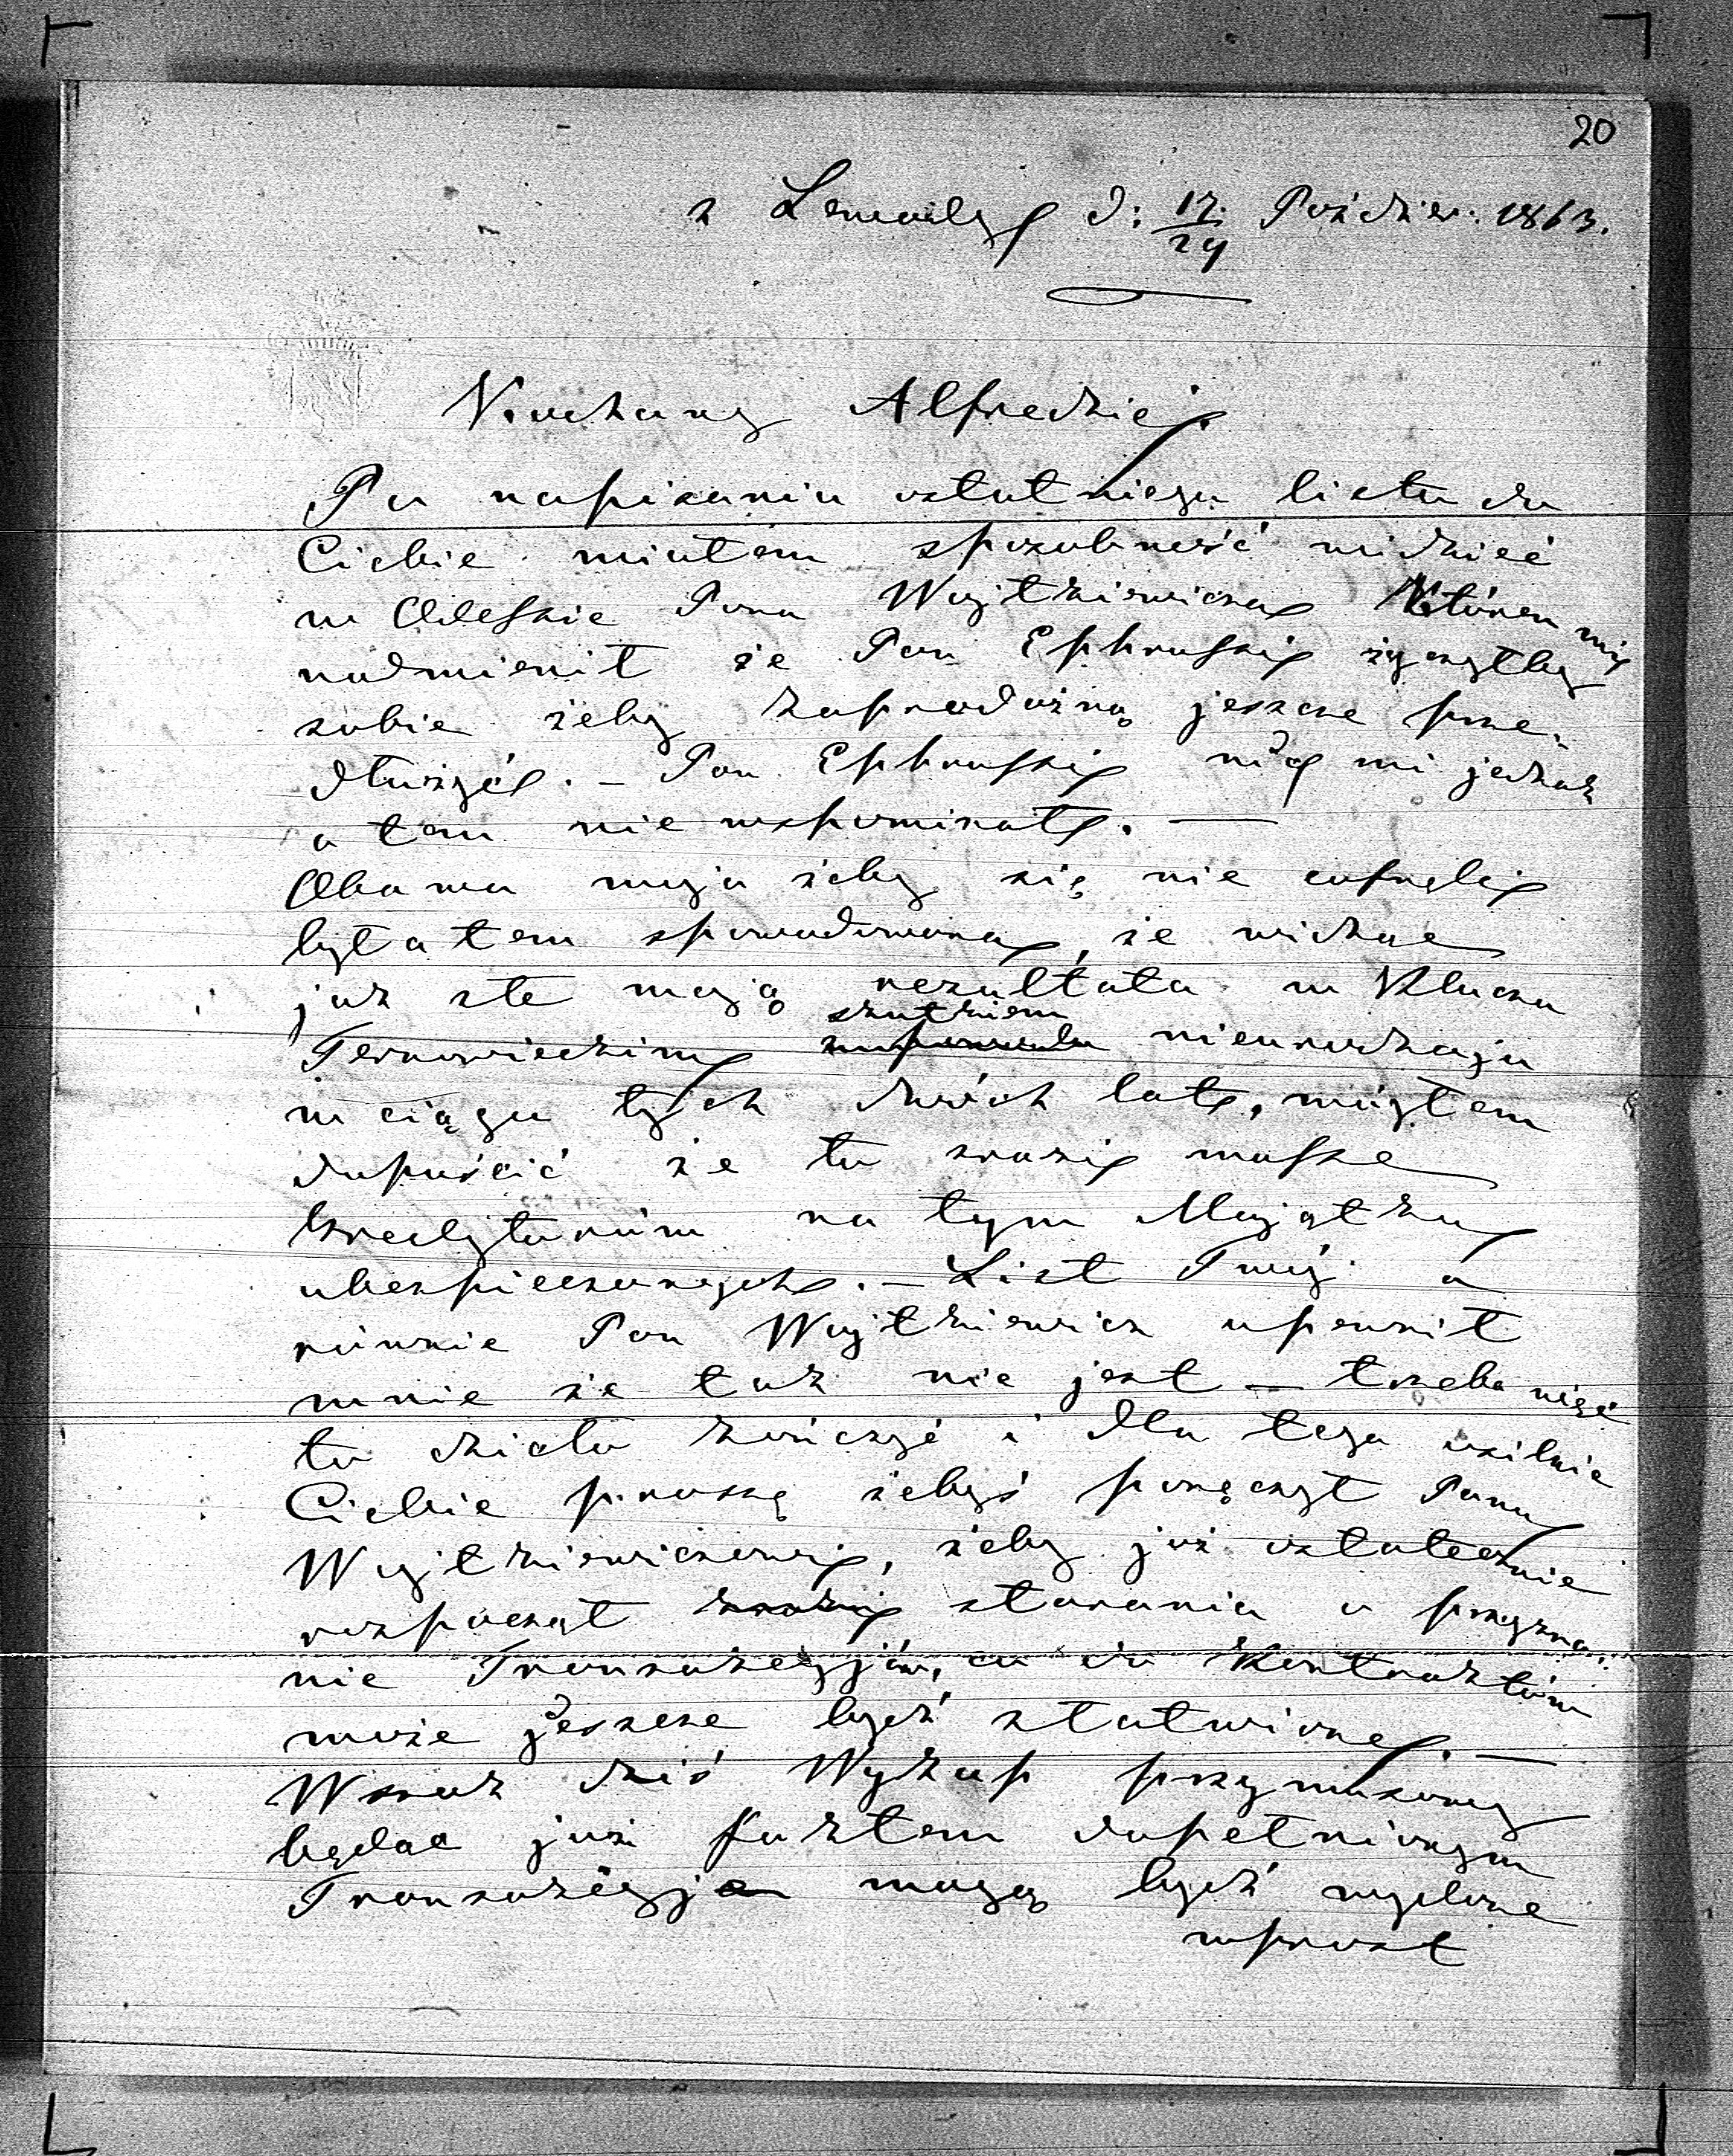 20
z Lemoily d: 12/24 Paździer: 1863.
Kochany Alfredzie
Po napisaniu ostatniego listu do
Ciebie miałem sposobność widzieć
w Odessie Pana Wojtkiewicza Któren mi
nadmienił że Pan Ephrussi życzyłby
sobie żeby zaprodażną jeszcze prze-
dłużyć. – Pan Ephrussi nic mi jednak
o tem nie wspominał. —
Obawa moja żeby się nie cofnęli
była tem spowodowana, że widząc
jak złe mają rezultata w Kluczu
skutkiem
nieurodzaju
w ciągu tych dwóch lat, mógłem
dopuścić że to zrazi massę
kredytorów na tym Majątku
ubezpieczonych. – List Twój a
równie Pan Wojtkiewicz upewnił
mnie że tak nie jest – trzeba więc
to dzieło kończyć i dla tego usilnie
Ciebie proszę żebyś poręczył Panu
Wojtkiewiczowi, żeby już ostatecznie
rozpoczął starania o przyzna-
nie Transakcyjów, co do Kontraktów
może jeszcze bydź załatwione. —
Wszak dziś Wykup przymusowy
będąc już faktem dopełnionym
Transakcyje mogą bydź wydane
wprost